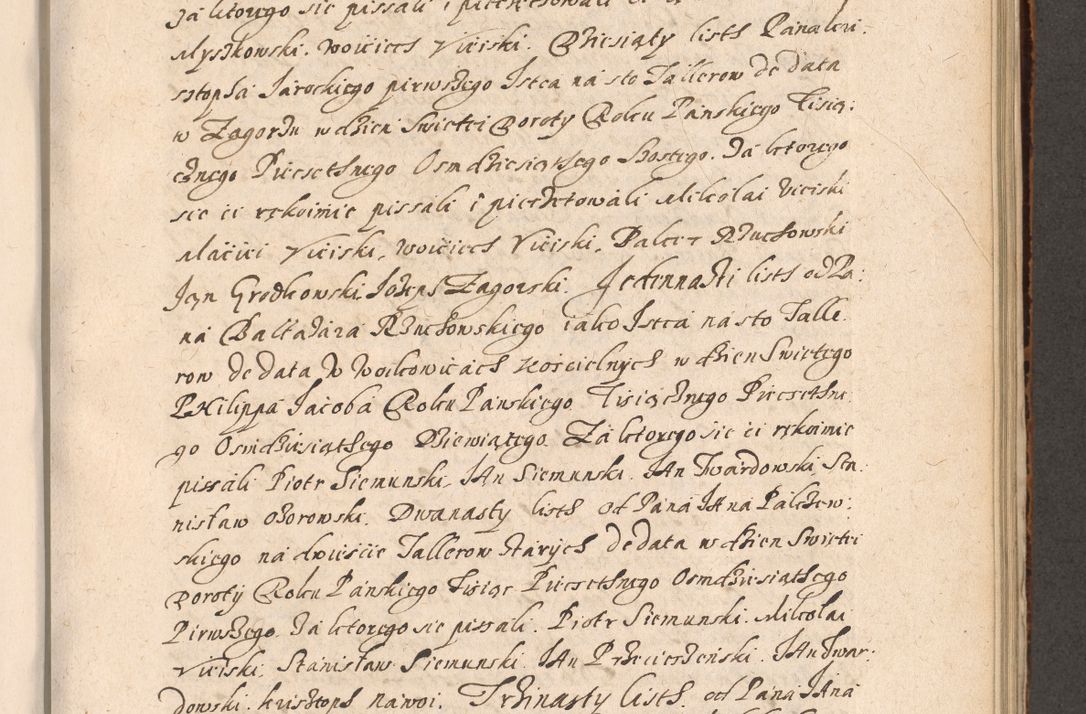 Za ktorego sie pissali i pieczetowali
Myszkowski. Woiciech Viciski. Dziesiąty listh Pana Kri:
sztopha Jarockiego pierwszego Istca na sto Tallerow de data
w Zagorzu w dzien Swiętei Doroty Roku Panskiego Tisią:
cznego Piecsethnego Osmdziesiąthego Szostego. Za ktorego
sie ci rękoimie pissali i pieczetowali Mikolai Viciski
Maciei Viciski, Woiciech Viciski, Balcer Rzuchowski
Jan Grodkowski Jozeph Zagorski. Jedennasti listh od Pa:
na Baltazara Rzuchowskiego iako Istca na sto Talle
row de data W Woikowicach Kościelnych w dzien Swiętego
PHilippa Jacoba Roku Panskiego Tisiącznego Piecsethne
go Osmdziesiąthego Dziewiątego. Za ktorego sie ci rękoimie
pissali Piotr Siemunski, JAn Siemunski. JAn Twardowski Sta:
nisław Ożorowski. Dwanasty listh od Pana JAna Palczew:
skiego na dwieście Tallerow starych de data w dzien Swiętei
Doroty Roku Panskiego Tisiąc Piecsethnego Osmdziesiathego
Pierwszego. Za ktorego sie pissali. Piotr Siemunski. Mikołai
Viciski. Stanisław Siemunski. JAn Przecieszeński. JAn Twar:
dowski. Krisztoph Nawoi. Trzinasty listh. od Pana JAna